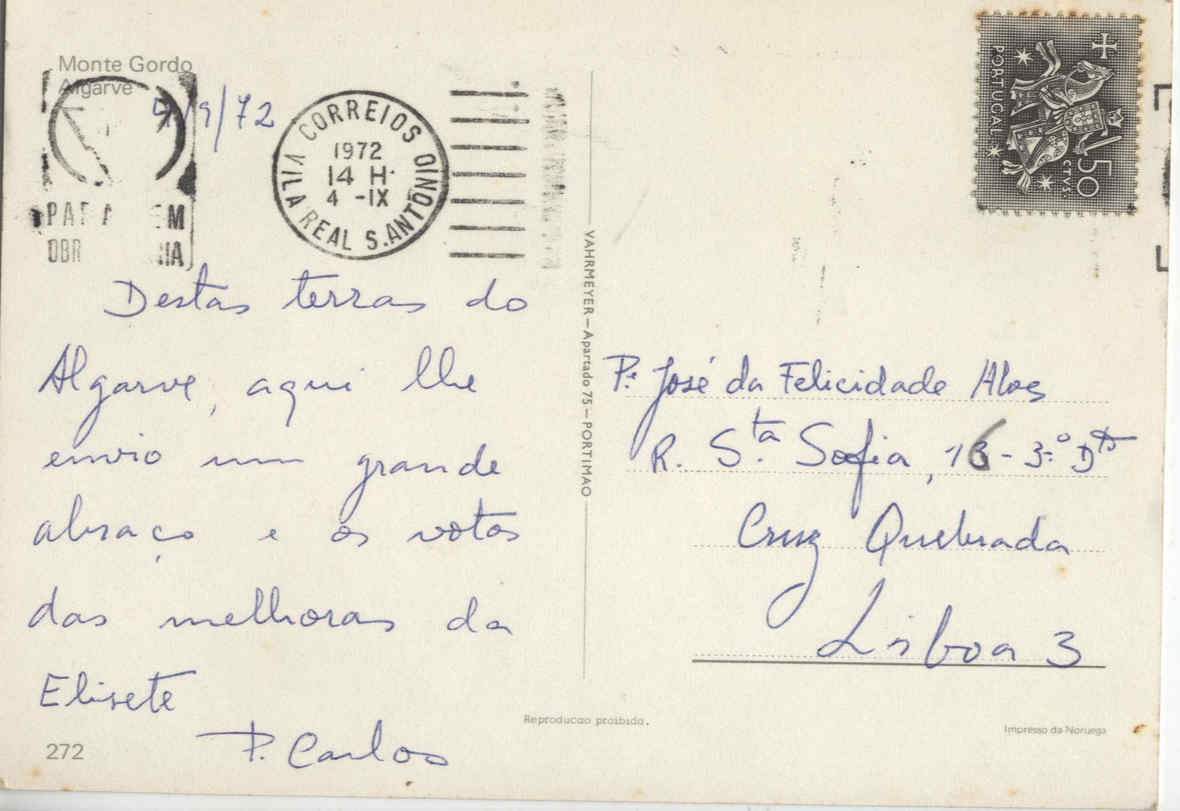 Monte Gordo
Algarve
4/9/72
CORREIOS
1972
14 H.
4 -IX
VILA REAL S. ANTÓNIO
PORTUGAL
50
CTVS.
Destas terras do
Algarve, aqui lhe
envio um grande
abraço e os votos
das melhoras da
Elisete
P. Carlos
272
VAHRMEYER — Apartado 75 — PORTIMAO
P.e José da Felicidade Alves
R. S.ta Sofia, 16 - 3.º Dto
Cruz Quebrada
Lisboa 3
Reproducao proibida.
Impresso da Noruega